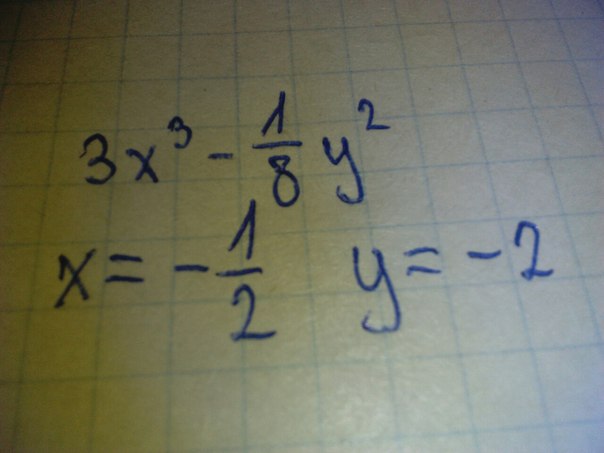 3x³ - 1/8 y²
x = -1/2 y = -2